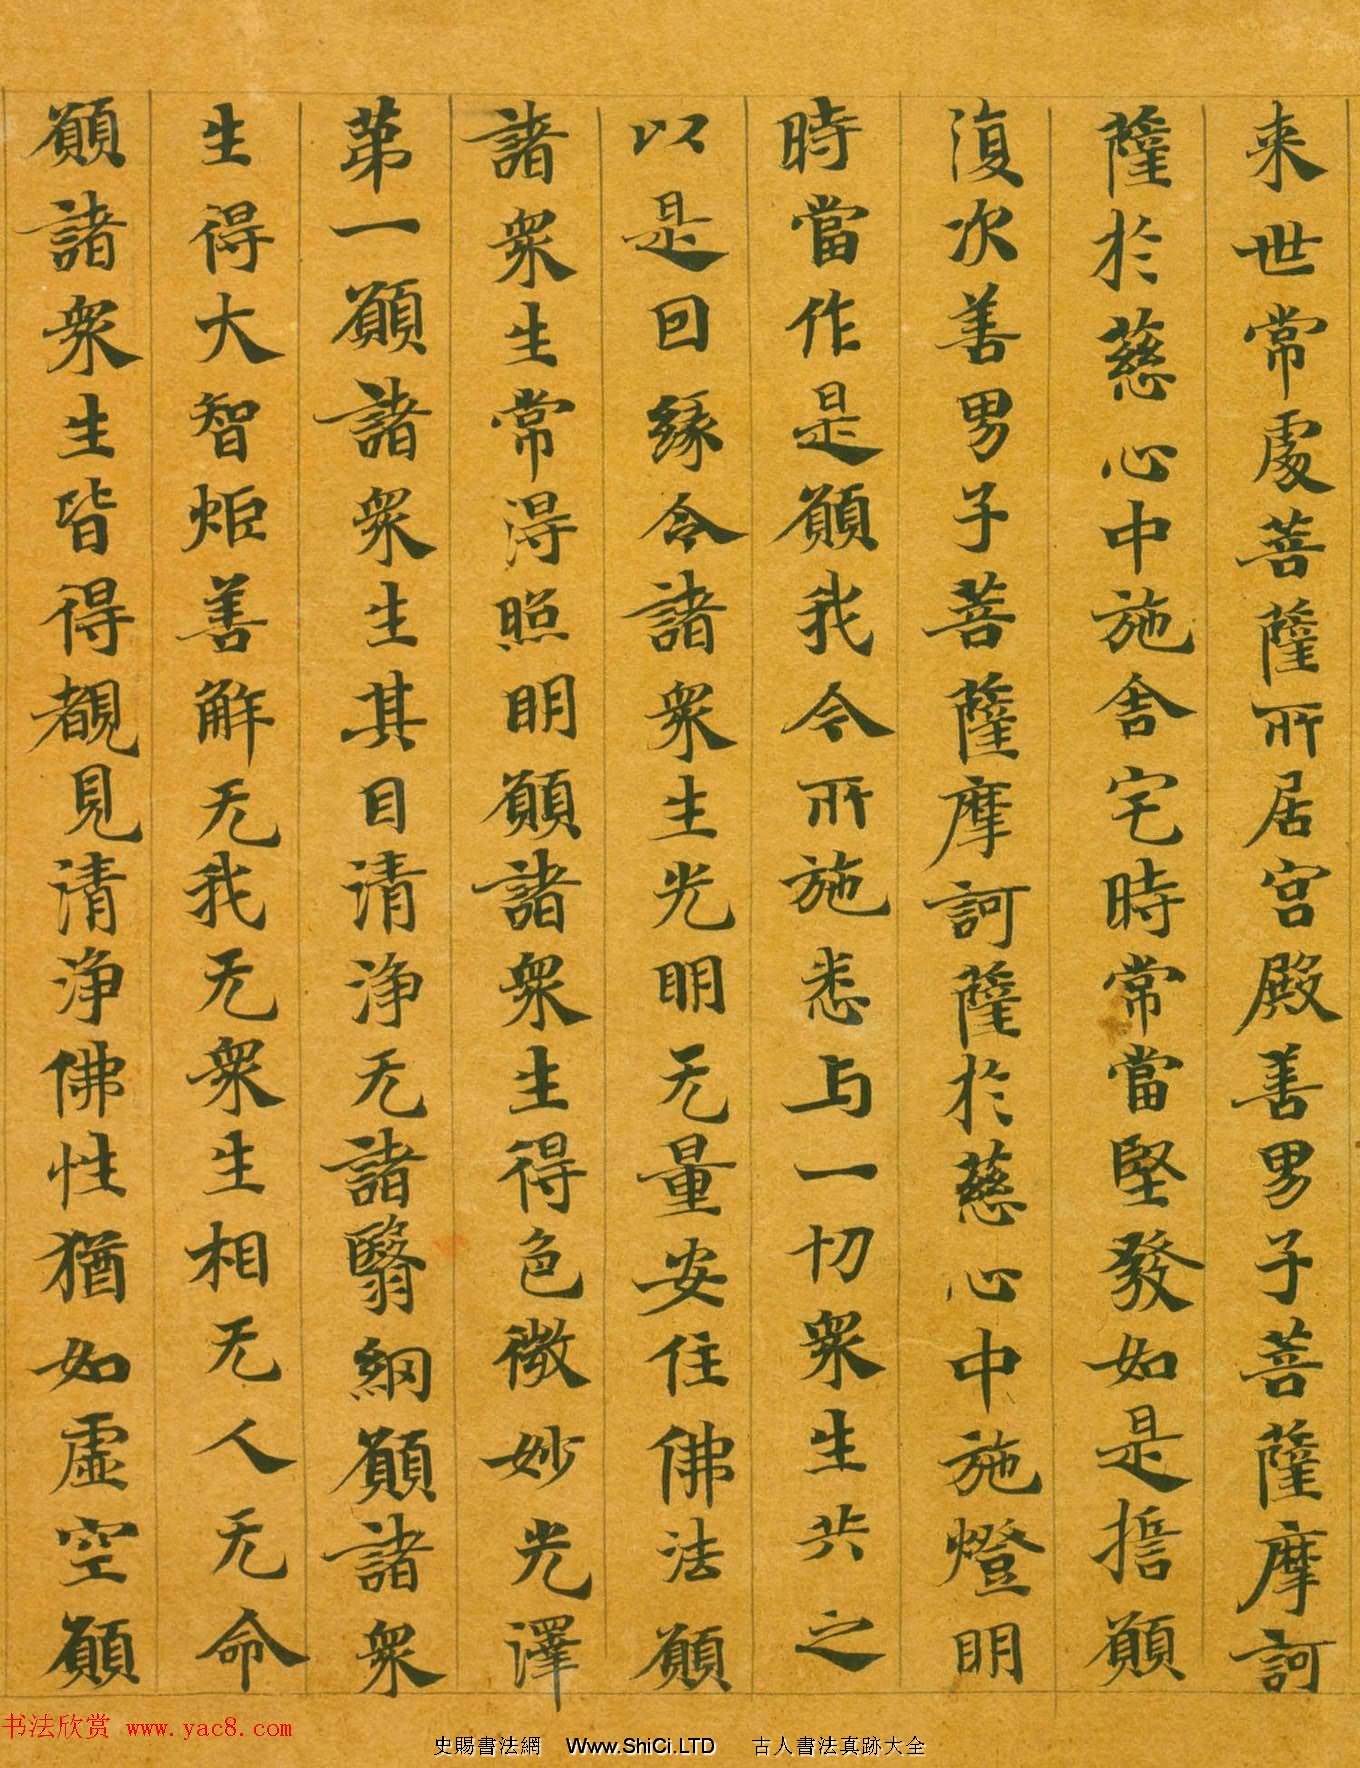 来世常處菩薩所居宫殿善男子菩薩摩訶
薩於慈心中施舍宅時常當堅發如是擔願
復次善男子菩薩摩訶薩於慈心中施燈明
時當作是願我今所施悉与一切衆生共之
以是回緣令諸衆生光明无量安住佛法願
諸衆生常得照明願諸衆生得色微妙光澤
苐一願諸衆生其目清淨无諸翳網願諸衆
生得大智炬善解无我无衆生相无人无命
願諸衆生皆得覩見清淨佛性猶如虛空願
书法欣赏 www.yac8.com
史賜書法網 Www.ShiCi.LTD 古人書法真跡大全